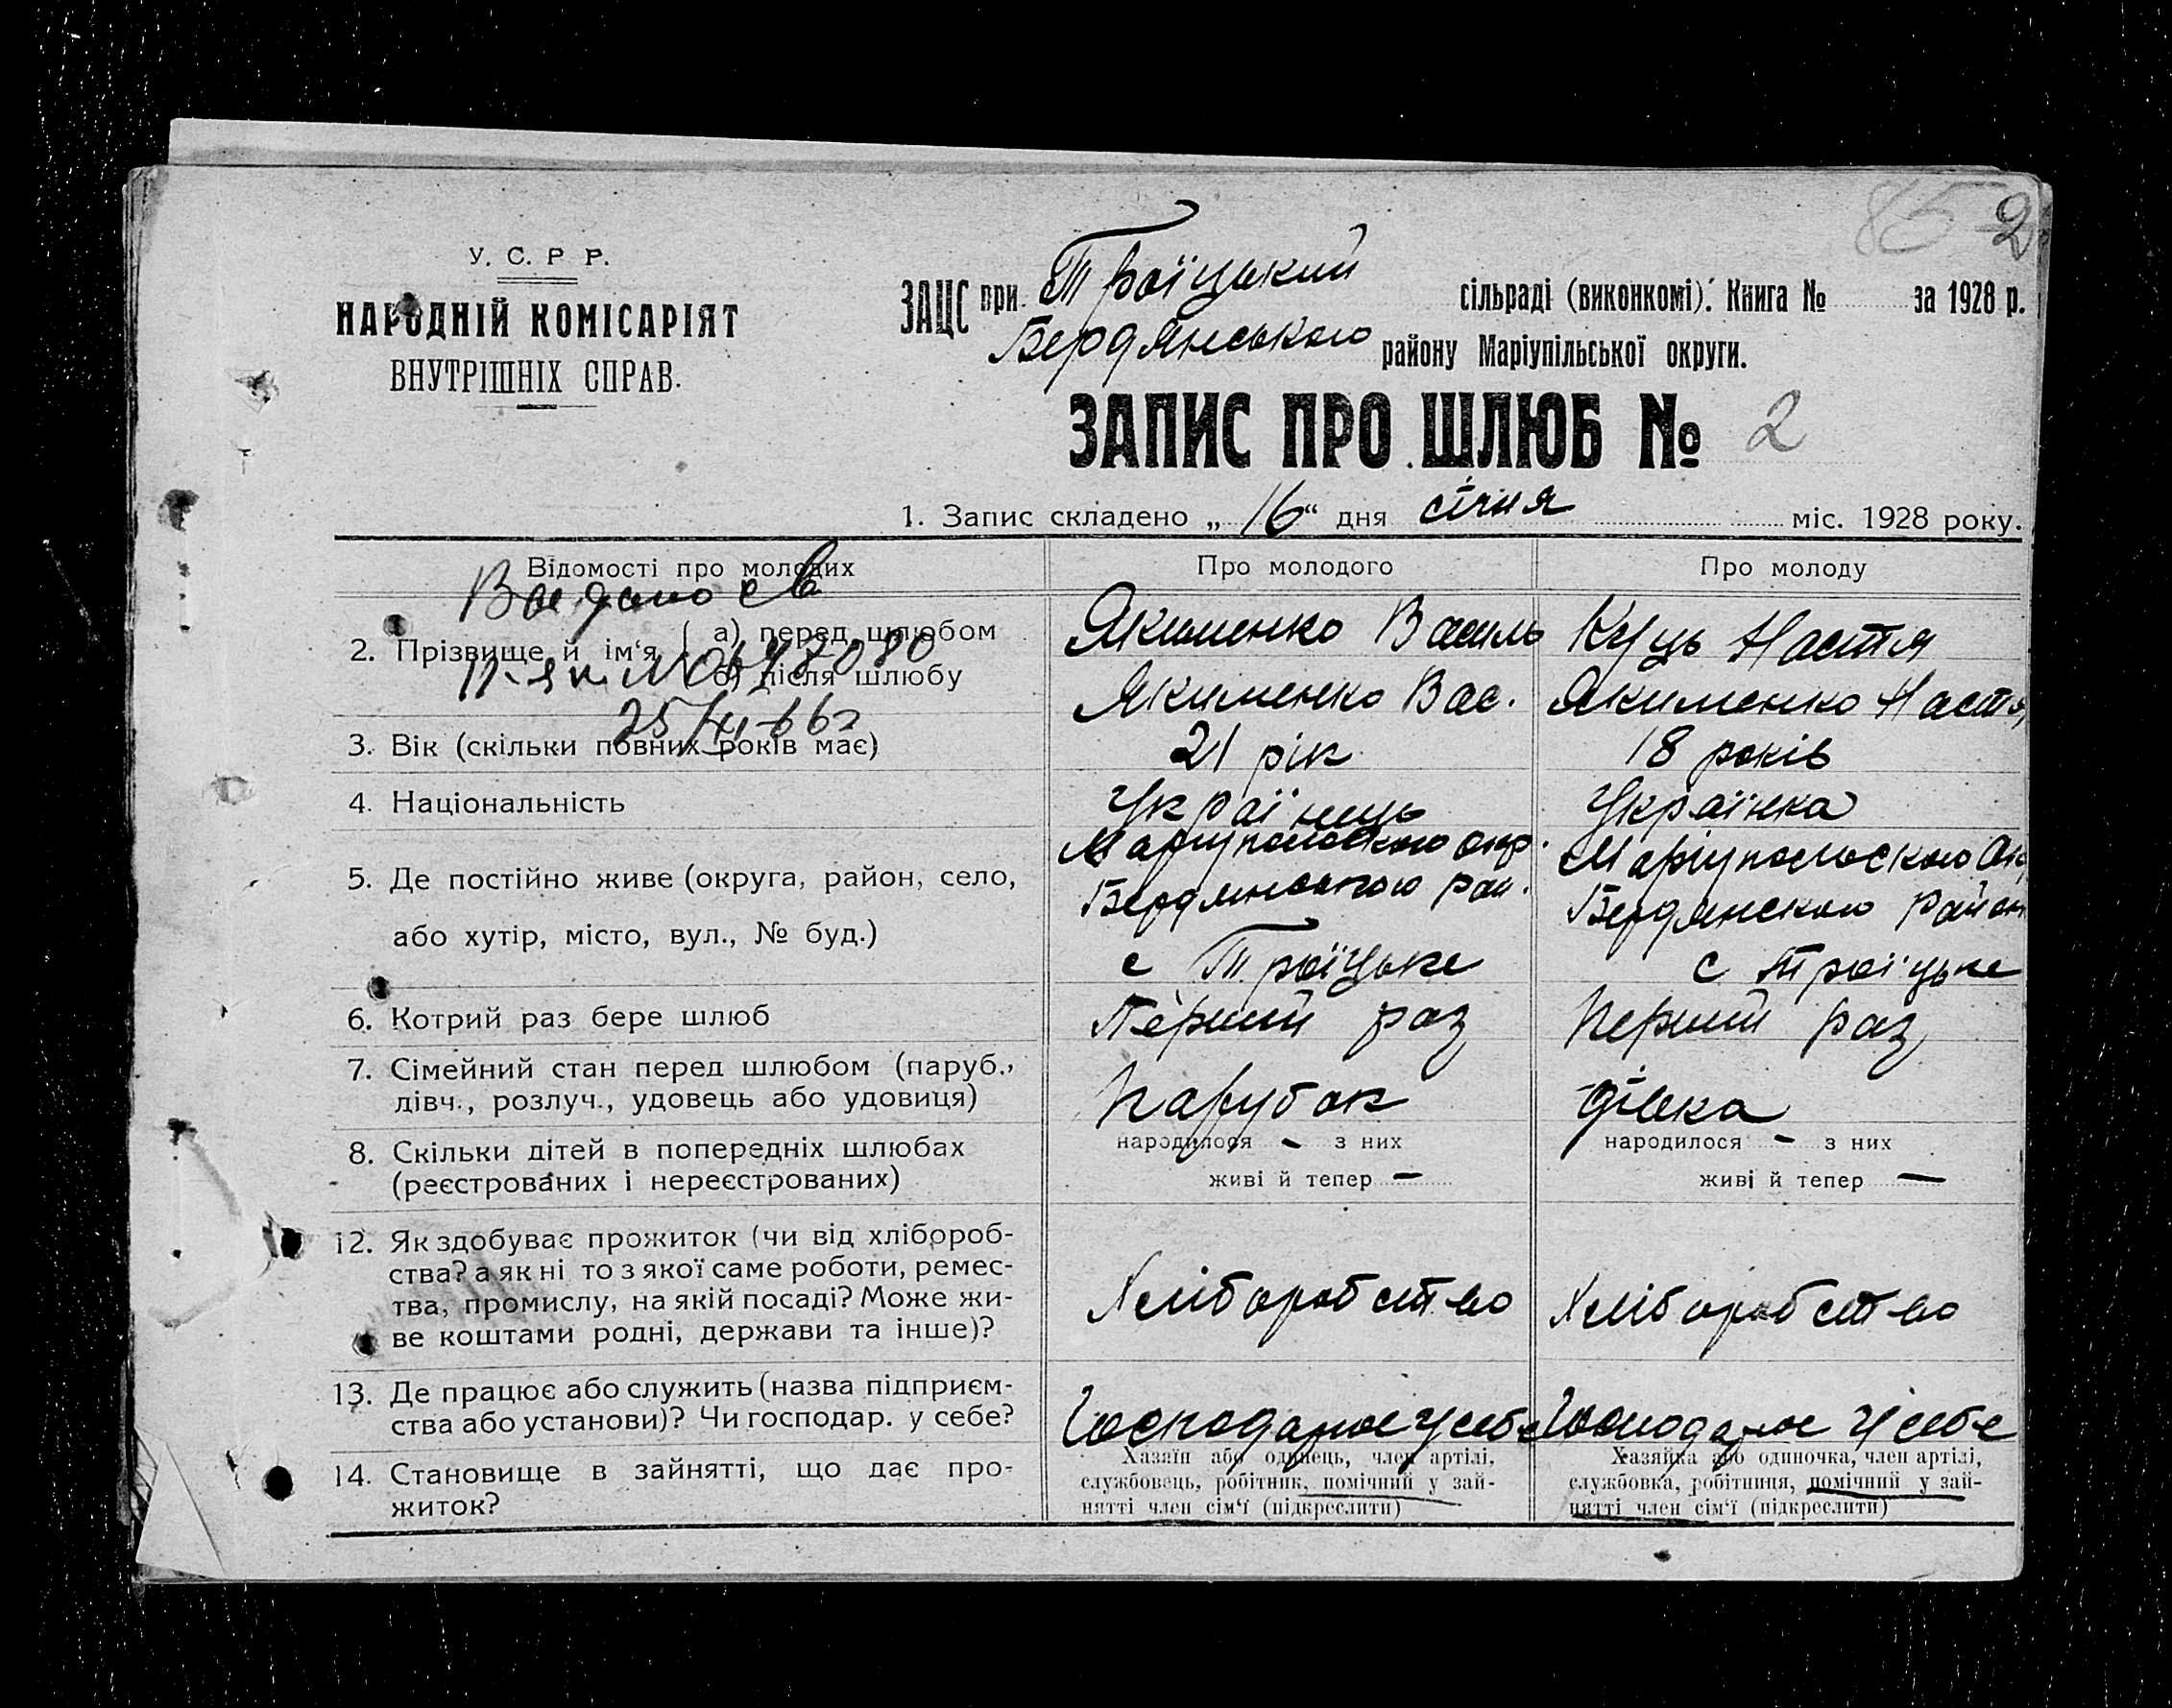 85 2
У. С. Р Р.
НАРОДНІЙ КОМІСАРІЯТ
ВНУТРІШНІХ СПРАВ.
ЗАЦС при Троїцький сільраді (виконкомі). Книга № за 1928 р.
Бердянського району Маріупільської округи.
ЗАПИС ПРО ШЛЮБ № 2
1. Запис складено „16“ дня січня міс. 1928 року.
Відомості про молодих
Про молодого
Про молоду
2. Прізвище й ім‘я
а) перед шлюбом
Якименко Василь
Куць Настя
б) після шлюбу
Якименко Вас.
Якименко Настя
3. Вік (скільки повних років має)
21 рік
18 років
4. Національність
Українець
Українка
5. Де постійно живе (округа, район, село,
або хутір, місто, вул., № буд.)
Маріупольського окр.
Бердянського рай.
с Троїцьке
Маріупольского Ок
Бердянского район
с Троїцьке
6. Котрий раз бере шлюб
Перший раз
Перший раз
7. Сімейний стан перед шлюбом (паруб.,
дівч., розлуч., удовець або удовиця)
Парубок
Дівка
8. Скільки дітей в попередніх шлюбах
(реєстрованих і нереєстрованих)
народилося – з них
живі й тепер –
народилося – з них
живі й тепер –
12. Як здобуває прожиток (чи від хлібороб-
ства? а як ні то з якої саме роботи, ремес-
тва, промислу, на якій посаді? Може жи-
ве коштами родні, держави та інше)?
Хліборобство
Хліборобство
13. Де працює або служить (назва підприєм-
ства або установи)? Чи господар. у себе?
Господарює у себе
Господарює у себе
14. Становище в зайнятті, що дає про-
житок?
Хазяїн або одинець, член артілі,
службовець, робітник, помічний у зай-
нятті член сім‘ї (підкреслити)
Хазяйка або одиночка, член артілі,
службовка, робітниця, помічний у зай-
нятті член сім‘ї (підкреслити)